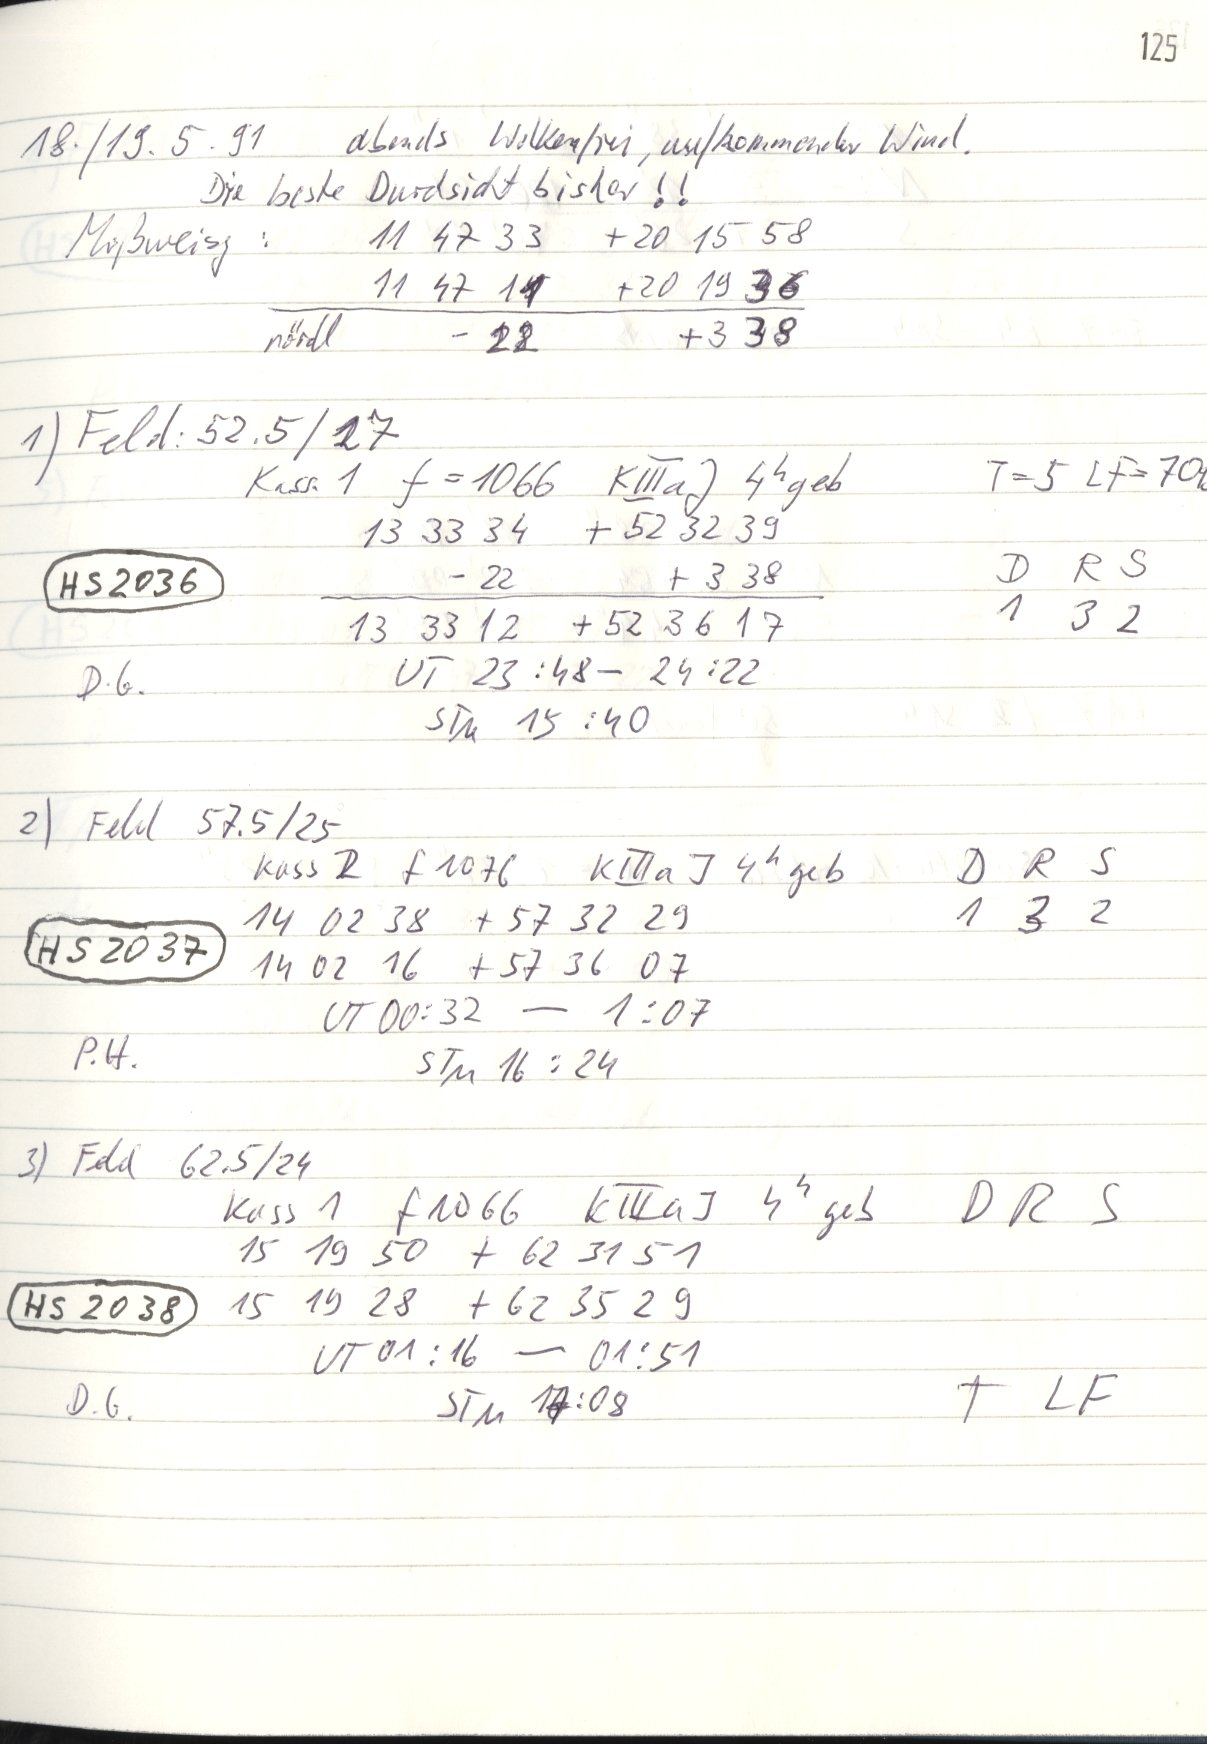 125
18./19.5.91 abends Wolkenfrei, aufkommender Wind.
Die beste Durchsicht bisher!!
Mißweisg: 11 47 33 +20 15 58
11 47 11 +20 19 36
nördl -22 +3 38
1) Feld: 52.5/27
Kass. 1 f=1066 KIIIaJ 4h geb T=5 LF=70%
13 33 34 +52 32 39
HS2036 -22 +3 38 D R S
13 33 12 +52 36 17 1 3 2
D.G. UT 23:48 — 24:22
STM 15:40
2) Feld 57.5/25
Kass 2 f 1076 KIIIaJ 4h geb D R S
14 02 38 +57 32 29 1 3 2
HS2037 14 02 16 +57 36 07
UT 00:32 — 1:07
P.H. STM 16:24
3) Feld 62.5/24
Kass 1 f 1066 KIIIaJ 4h geb D R S
15 19 50 +62 31 51
HS 2038 15 19 28 +62 35 29
UT 01:16 — 01:51
D.G. STM 17:08 T LF